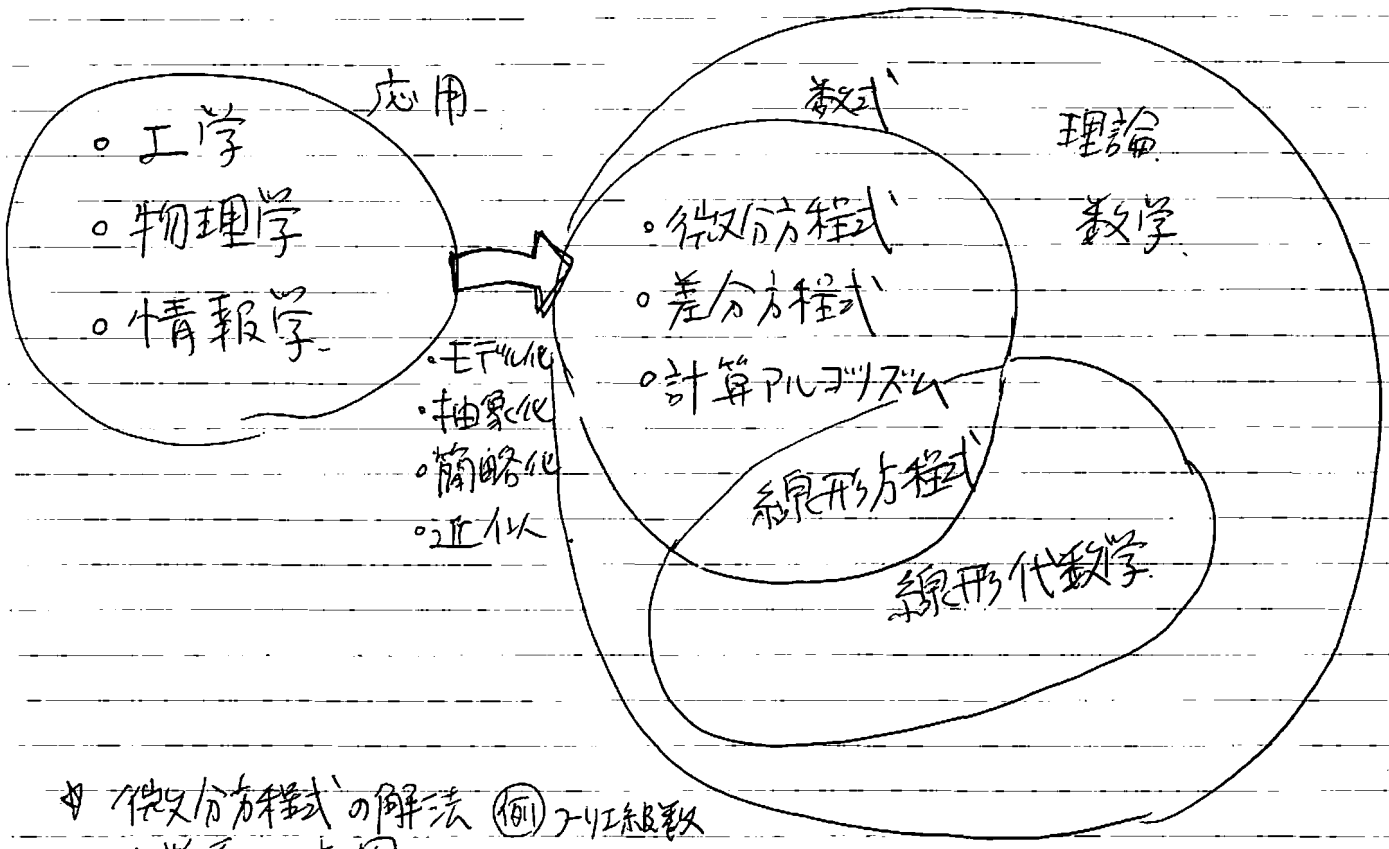 応用
・工学
・物理学
・情報学
・モデル化
・抽象化
・簡略化
・近似
数式
・微分方程式
・差分方程式
・計算アルゴリズム
線形方程式
線形代数学
理論
数学
微分方程式の解法 例 フーリエ級数